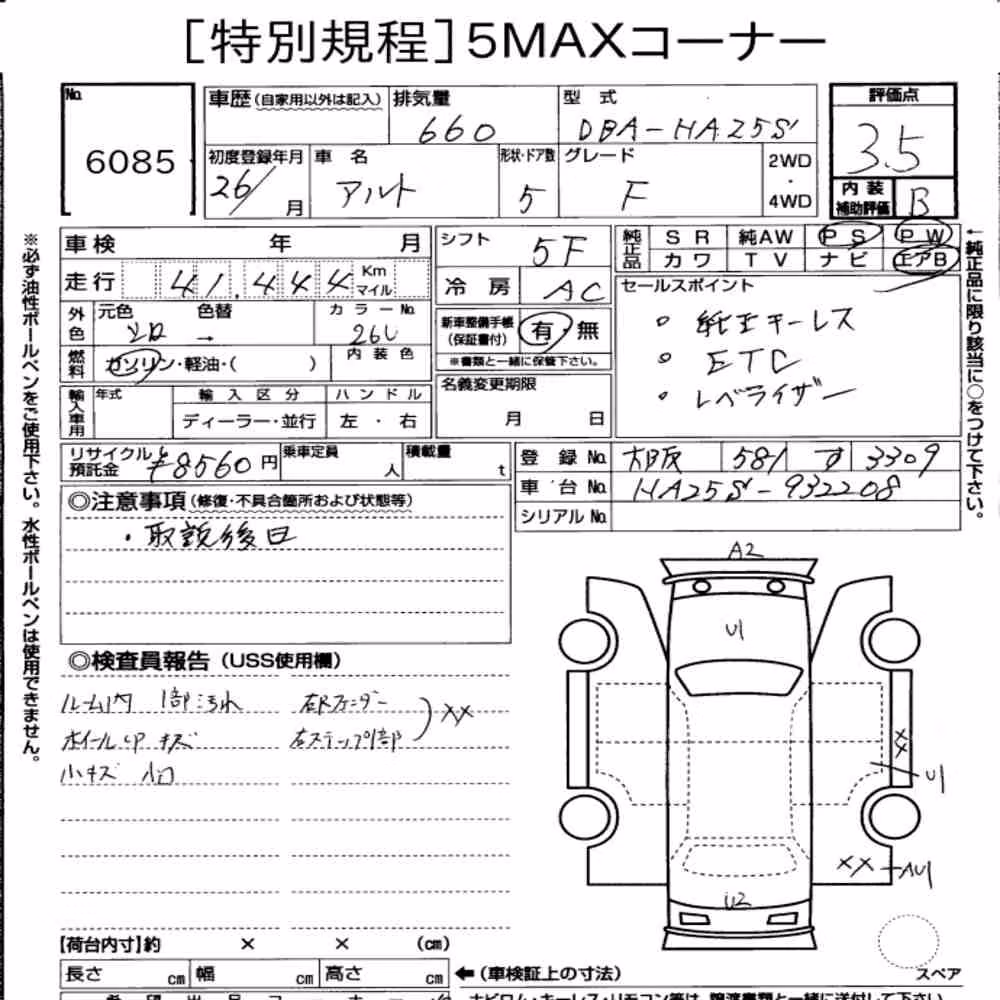 [特別規程]5MAXコーナー
No. 6085
車歴(自家用以外は記入) 排気量 660
型式 DBA-HA25S
評価点 3.5
初度登録年月 26/ 月
車名 アルト
形状・ドア数 5
グレード F
2WD・4WD
内装補助評価 B
車検 年 月
シフト 5F
純正品 SR 純AW PS PW
カワ TV ナビ エアB
走行 41,444 Km マイル
冷房 AC
セールスポイント
・純正キーレス
・ETC
・レベライザー
外色 元色 色替 カラーNo. 26U
→
新車整備手帳(保証書付) 有・無
※書類と一緒に保管下さい。
燃料 ガソリン・軽油・( ) 内装色
名義変更期限 月 日
輸入車用 年式 輸入区分 ハンドル
ディーラー・並行 左・右
リサイクル預託金 ¥8560円 乗車定員 人 積載量 t
登録No. 大阪 581 す 3309
車台No. HA25S-932208
シリアルNo.
◎注意事項(修復・不具合箇所および状態等)
・取説後日
◎検査員報告(USS使用欄)
ルーム内 1部汚れ
ホイールCP キズ
小キズ 凹
右Rフェンダー
右ステップ1部
XX
A2
U1
XX
U1
XX AU1
U2
スペア
【荷台内寸】約 × × (cm)
長さ cm 幅 cm 高さ cm
←(車検証上の寸法)
※必ず油性ボールペンをご使用下さい。水性ボールペンは使用できません。
←純正品に限り該当に○をつけて下さい。